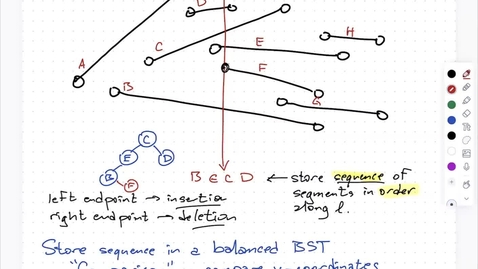 D
H
C
E
A
F
B
G
C
E
D
B
F
B E C D ← store sequence of
segments in order
along l.
left endpoint → insertion
right endpoint → deletion
Store sequence in a balanced BST